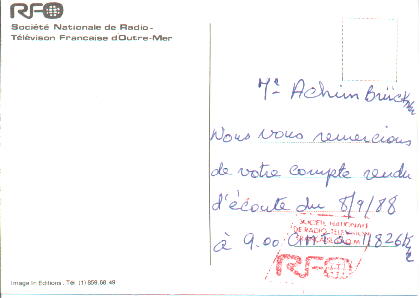 RFO
Société Nationale de Radio-
Télévision Française d'Outre-Mer
Mr Achim Brückner
Nous vous remercions
de votre compte rendu
d'écoute du 8/9/88
à 9.00 GMT à 11826 KHz
SOCIÉTÉ NATIONALE
DE RADIO-TÉLÉVISION
RFO
Image In Editions. Tél. (1) 859.68.49